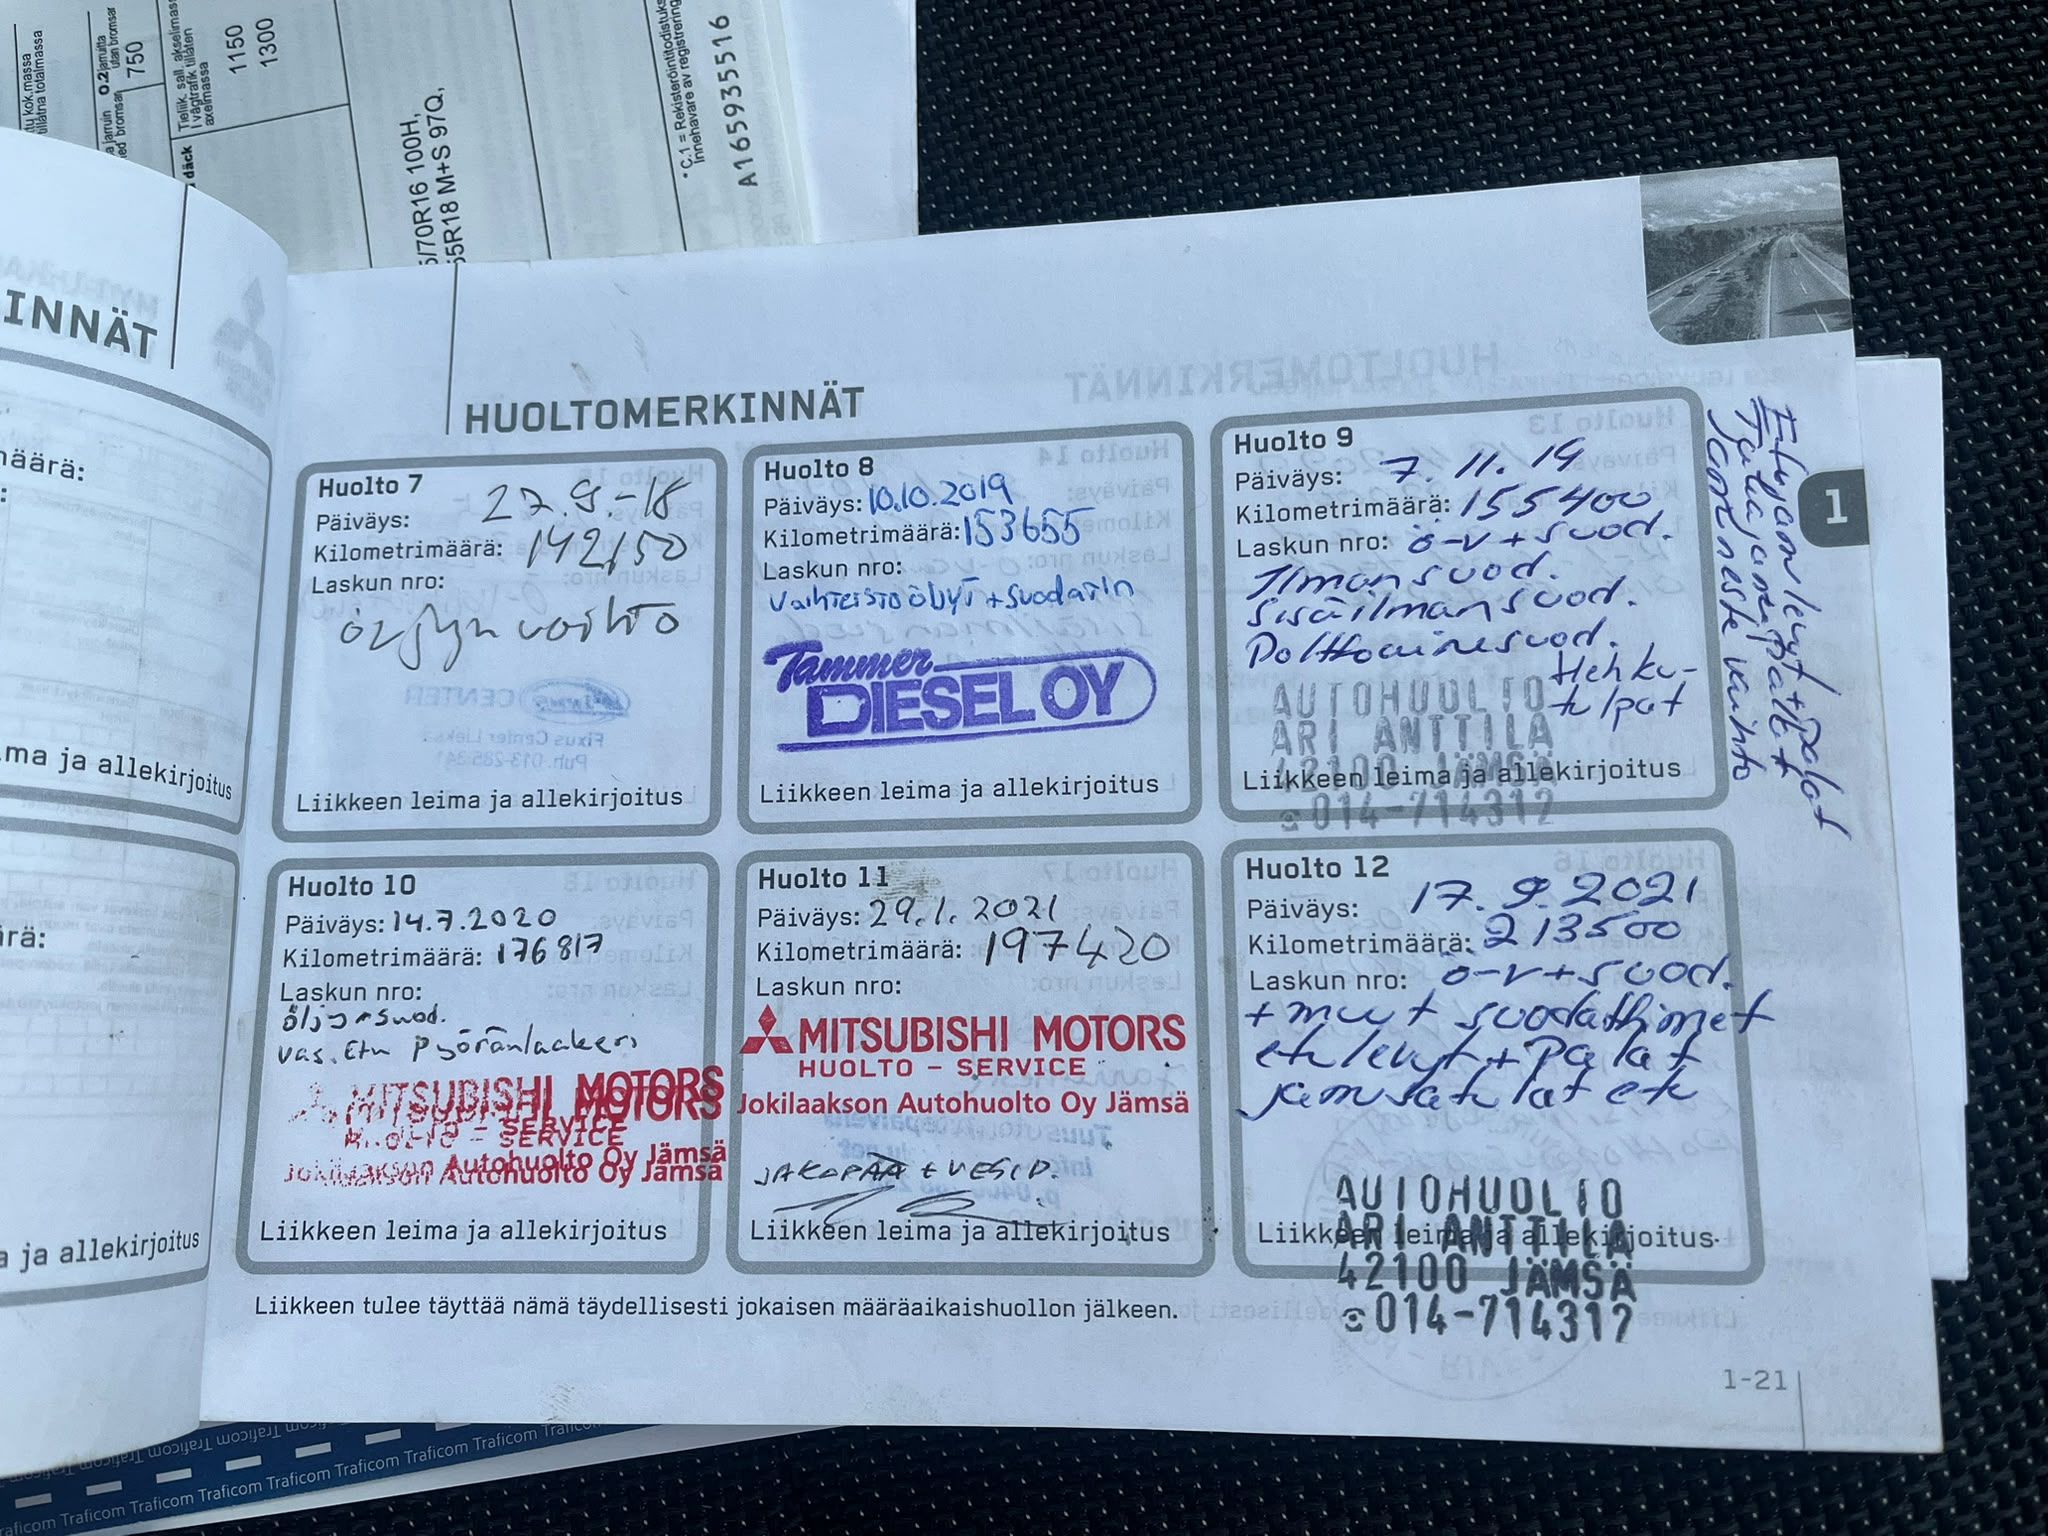 750
1150
1300
5/70R16 100H,
55R18 M+S 97Q,
*C.1 = Rekisteröintitodistuks
Innehavare av registrering
A165935516
INNÄT
näärä:
ma ja allekirjoitus
rä:
a ja allekirjoitus
HUOLTOMERKINNÄT
Huolto 7
Päiväys: 27.9.-18
Kilometrimäärä: 142150
Laskun nro:
öljyn vaihto
Liikkeen leima ja allekirjoitus
Huolto 8
Päiväys: 10.10.2019
Kilometrimäärä: 153655
Laskun nro:
Vaihteistoöljyt + suodatin
Tammer
DIESEL OY
Liikkeen leima ja allekirjoitus
Huolto 9
Päiväys: 7.11.19
Kilometrimäärä: 155400
Laskun nro: ö-v + suod.
Ilmansuod.
Sisäilmansuod.
Polttoainesuod.
Hehku-
tulpat
AUTOHUOLTO
ARI ANTTILA
42100 JÄMSÄ
Liikkeen leima ja allekirjoitus
☎014-714312
Etujarrulevyt + palat
Takajarrupalat
Jarruneste vaihto
1
Huolto 10
Päiväys: 14.7.2020
Kilometrimäärä: 176817
Laskun nro:
öljy + suod.
vas. Etu Pyöränlaakeri
MITSUBISHI MOTORS
HUOLTO – SERVICE
Jokilaakson Autohuolto Oy Jämsä
Liikkeen leima ja allekirjoitus
Huolto 11
Päiväys: 29.1.2021
Kilometrimäärä: 197420
Laskun nro:
MITSUBISHI MOTORS
HUOLTO – SERVICE
Jokilaakson Autohuolto Oy Jämsä
JAKOPÄÄ + VESIP.
Liikkeen leima ja allekirjoitus
Huolto 12
Päiväys: 17.9.2021
Kilometrimäärä: 213500
Laskun nro: ö-v + suod.
+ muut suodattimet
etulevyt + Palat
jarrusatulat etu
AUTOHUOLTO
Liikkeen leima ja allekirjoitus
ARI ANTTILA
42100 JÄMSÄ
☎014-714312
Liikkeen tulee täyttää nämä täydellisesti jokaisen määräaikaishuollon jälkeen.
1-21
Traficom Traficom Traficom Traficom Traficom Traficom